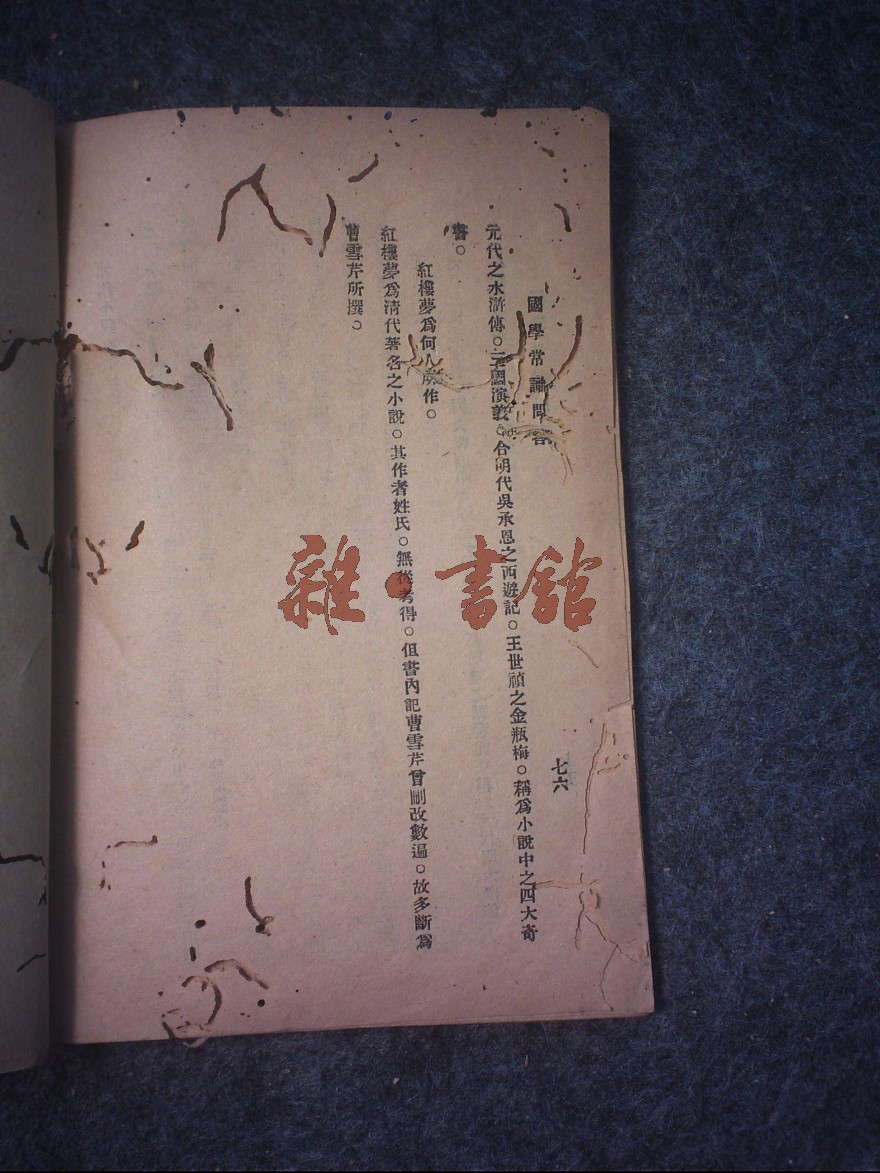 國學常識問答
七六
元代之水滸傳。三國演義。合明代吳承恩之西遊記。王世禎之金瓶梅。稱爲小說中之四大奇
書。
紅樓夢爲何人所作。
紅樓夢爲清代著名之小說。其作者姓氏。無從考得。但書內記曹雪芹曾刪改數遍。故多斷爲
曹雪芹所撰。
雜·書舘